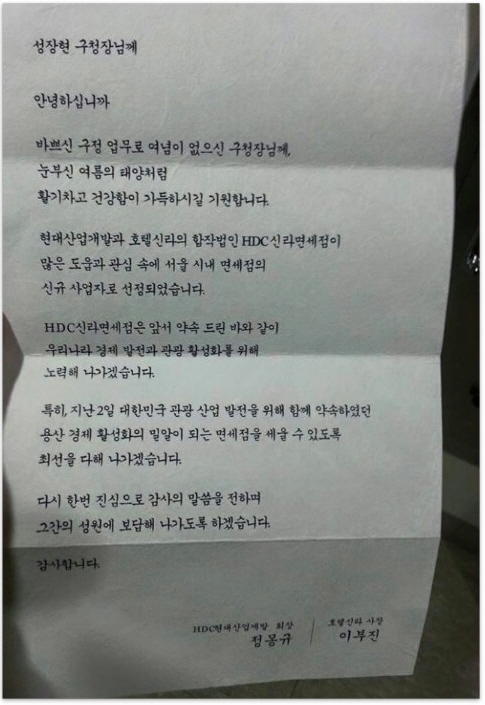 성장현 구청장님께
안녕하십니까
바쁘신 구정 업무로 여념이 없으신 구청장님께,
눈부신 여름의 태양처럼
활기차고 건강함이 가득하시길 기원합니다.
현대산업개발과 호텔신라의 합작법인 HDC신라면세점이
많은 도움과 관심 속에 서울 시내 면세점의
신규 사업자로 선정되었습니다.
HDC신라면세점은 앞서 약속 드린 바와 같이
우리나라 경제 발전과 관광 활성화를 위해
노력해 나가겠습니다.
특히, 지난 2일 대한민국 관광 산업 발전을 위해 함께 약속하였던
용산 경제 활성화의 밀알이 되는 면세점을 세울 수 있도록
최선을 다해 나가겠습니다.
다시 한번 진심으로 감사의 말씀을 전하며
그간의 성원에 보답해 나가도록 하겠습니다.
감사합니다.
HDC현대산업개발 회장
정몽규
호텔신라 사장
이부진